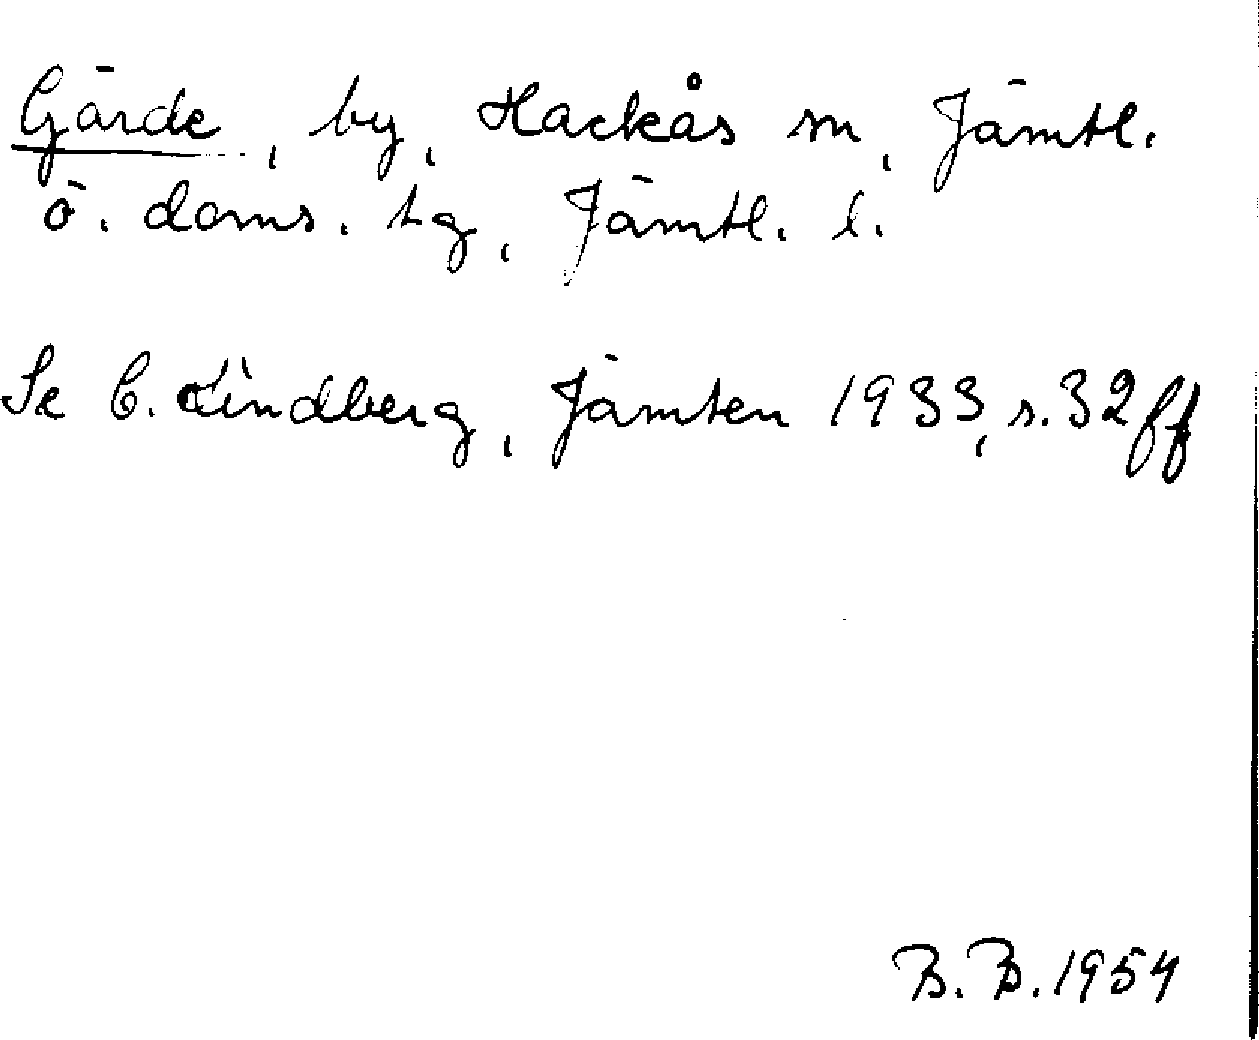 Gärde, by, Hackås sn, Jämtl.
ö. doms. tg, Jämtl. l.
Se C. Lindberg, Jämten 1933, s. 32 ff
B. B. 1954